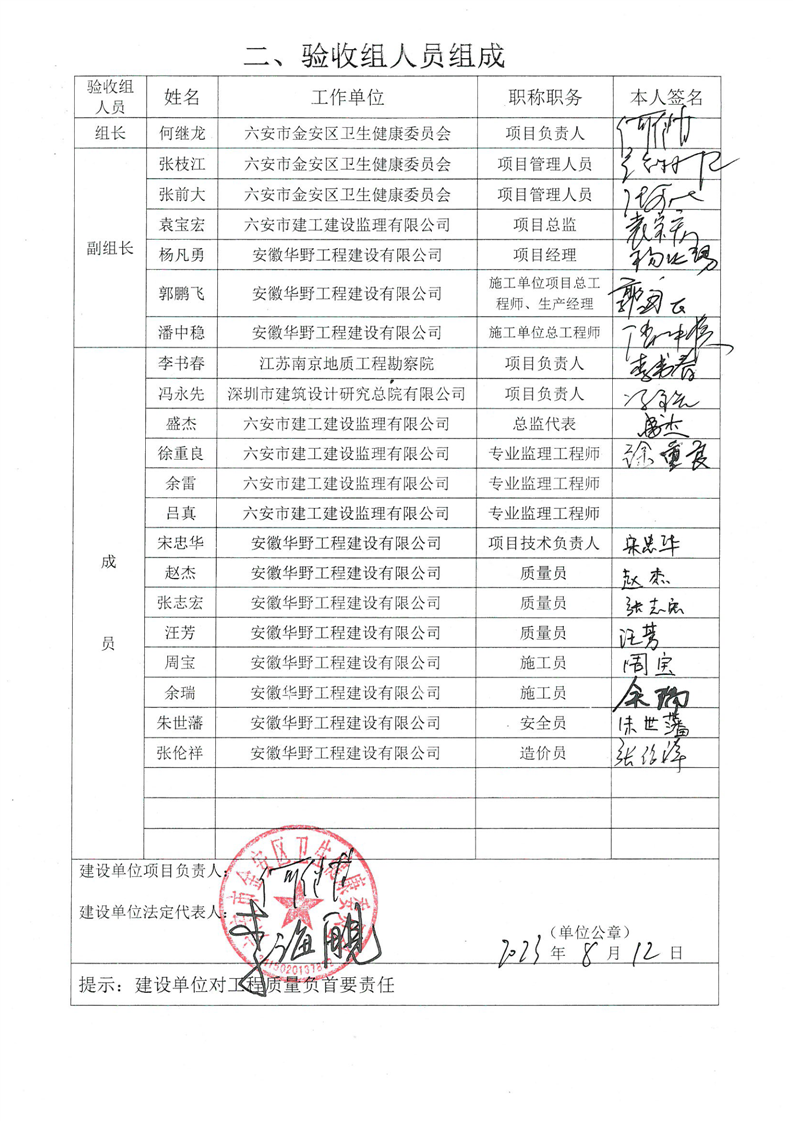 二、验收组人员组成
验收组人员 姓名 工作单位 职称职务 本人签名
组长 何继龙 六安市金安区卫生健康委员会 项目负责人
副组长
张枝江 六安市金安区卫生健康委员会 项目管理人员
张前大 六安市金安区卫生健康委员会 项目管理人员
袁宝宏 六安市建工建设监理有限公司 项目总监 袁宝宏
杨凡勇 安徽华野工程建设有限公司 项目经理
郭鹏飞 安徽华野工程建设有限公司 施工单位项目总工程师、生产经理
潘中稳 安徽华野工程建设有限公司 施工单位总工程师
成员
李书春 江苏南京地质工程勘察院 项目负责人 李书春
冯永先 深圳市建筑设计研究总院有限公司 项目负责人
盛杰 六安市建工建设监理有限公司 总监代表 盛杰
徐重良 六安市建工建设监理有限公司 专业监理工程师 徐重良
余雷 六安市建工建设监理有限公司 专业监理工程师
吕真 六安市建工建设监理有限公司 专业监理工程师
宋忠华 安徽华野工程建设有限公司 项目技术负责人 宋忠华
赵杰 安徽华野工程建设有限公司 质量员 赵杰
张志宏 安徽华野工程建设有限公司 质量员 张志宏
汪芳 安徽华野工程建设有限公司 质量员 汪芳
周宝 安徽华野工程建设有限公司 施工员 周宝
余瑞 安徽华野工程建设有限公司 施工员 余瑞
朱世藩 安徽华野工程建设有限公司 安全员 朱世藩
张伦祥 安徽华野工程建设有限公司 造价员 张伦祥
建设单位项目负责人:
建设单位法定代表人:
（单位公章）
2023 年 8 月 12 日
提示：建设单位对工程质量负首要责任